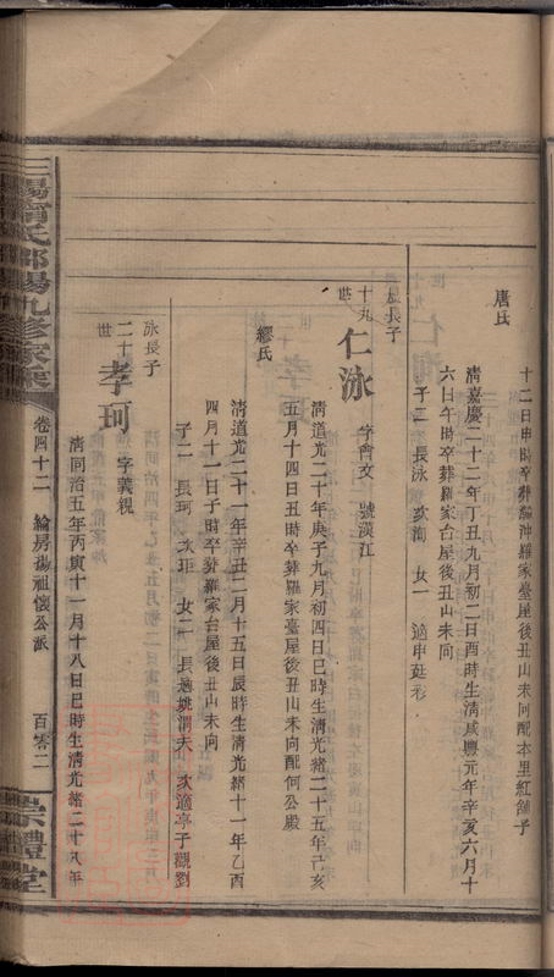 十二日申時卒葬編沖羅家臺屋後丑山未向配本里紅舖子
唐氏
清嘉慶二十二年丁丑九月初二日酉時生清咸豐元年辛亥六月十
六日午時卒葬羅家台屋後丑山未向
子二 長泳 次洵 女一 適申
長子
十九世
仁泳 字會文 號漢江
清道光二十年庚子九月初四日巳時生清光緒二十五年己亥
五月十四日丑時卒葬羅家臺屋後丑山未向配何公殿
繆氏
清道光二十一年辛丑二月十五日辰時生清光緒十一年乙酉
四月十一日子時卒葬羅家台屋後丑山未向
子二 長珂 次玨 女二 長適姚渭夫 次適亭子觀劉
泳長子
二十世
孝珂 字義覘
清同治五年丙寅十一月十八日巳時生清光緒二十八年
三陽 氏邵陽九修家乘
卷四十二 綸房揚祖懷公派 百零二
崇禮堂